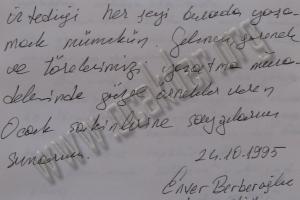 istediği her şeyi burada yaşa-
mak mümkün. Gelenek, görenek
ve törelerimizi yaşatma müca-
delesinde güzel örnekler veren
Ocak sakinlerine saygılarımı
sunarım.
24.10.1995
Enver Berberoğlu